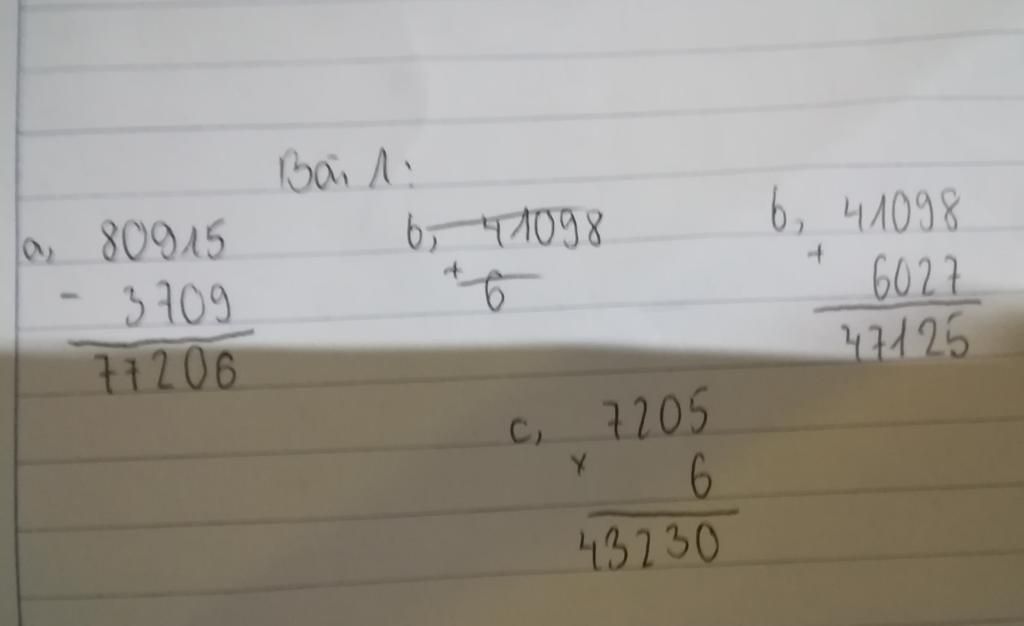 Bài 1:
a, 80915
- 3709
77206
b, 41098
+
6
b, 41098
+ 6027
47125
c, 7205
x 6
43230